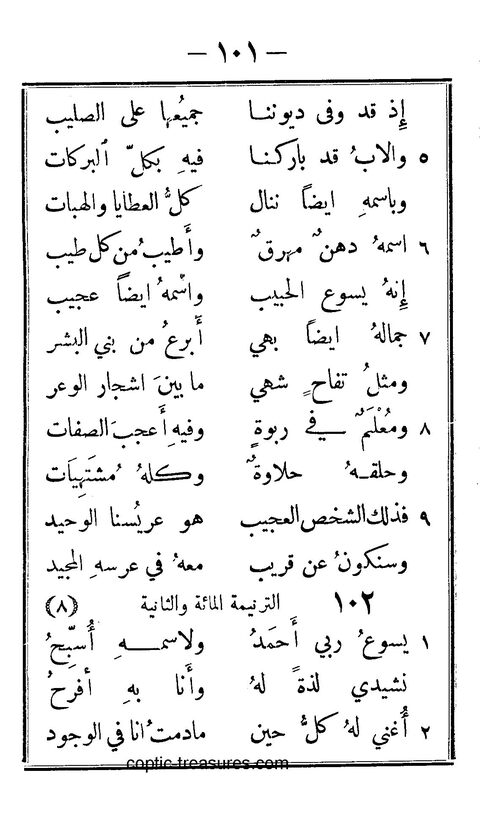 — ١٠١ —
إِذ قد وفى ديوننا جميُعها على الصليب
٥ والابُ قد باركنا فيهِ بكلِّ البركات
وباسمهِ ايضاً ننال كلُّ العطايا والهبات
٦ اسمهُ دهنٌ مهرقٌ وأَطيبُ من كل طيب
إِنهُ يسوع الحبيب واسْمهُ ايضاً عجيب
٧ جمالهُ ايضاً بهي أَبرعُ من بني البشر
ومثلُ تفاحٍ شهي ما بينَ اشجار الوعر
٨ ومُعْلَمٌ في ربوةٍ وفيهِ أَعجبَ الصفات
وحلقهُ حلاوةٌ وكلهُ مُشتَهِيَات
٩ فذلك الشخص العجيب هو عريسُنا الوحيد
وسنكونُ عن قريب معهُ في عرسهِ المجيد
١٠٢ الترنيمة المائة والثانية (٨)
١ يسوعُ ربي أَحمَدُ ولاسمهِ أُسبِّحُ
نشيدي لذةً لهُ وأَنا بهِ أفرحُ
٢ أُغني لهُ كلُّ حين مادمتُ انا في الوجود
coptic-treasures.com